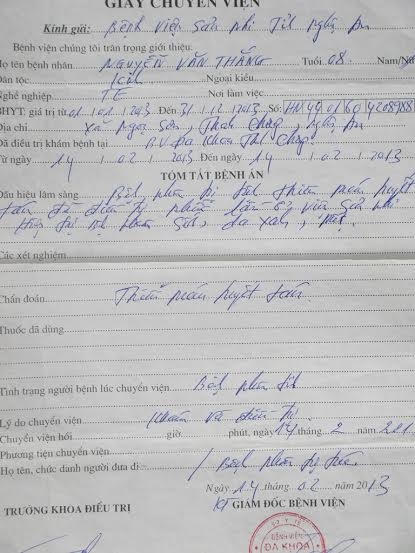 GIẤY CHUYỂN VIỆN
Kính gửi: Bệnh viện Sản nhi Tỉnh Nghệ An
Bệnh viện chúng tôi trân trọng giới thiệu:
Họ tên bệnh nhân NGUYỄN VĂN THẮNG Tuổi 08 Nam/Nữ
Dân tộc Kinh Ngoại kiều
Nghề nghiệp TE Nơi làm việc
BHYT: giá trị từ 01/01/2013 Đến 31/12/2013 Số:
Địa chỉ Xã Ngọc Sơn, Thanh Chương, Nghệ An
Đã điều trị khám bệnh tại B.V. Đa Khoa Thanh Chương
Từ ngày 14/02/2013 Đến ngày 14/02/2013
TÓM TẮT BỆNH ÁN
Dấu hiệu lâm sàng Bệnh nhân bị thiếu máu huyết
tán đã điều trị nhiều lần ở viện Sản nhi
da xanh,
Các xét nghiệm
Chẩn đoán Thiếu máu huyết tán
Thuốc đã dùng
Tình trạng người bệnh lúc chuyển viện Bệnh nhân tỉnh
Lý do chuyển viện Khám và điều trị
Chuyển viện hồi giờ phút, ngày 14 tháng 2 năm 201
Phương tiện chuyển viện
Họ tên, chức danh người đưa đi: Bệnh nhân tự túc
Ngày 14 tháng 02 năm 2013
TRƯỞNG KHOA ĐIỀU TRỊ KT GIÁM ĐỐC BỆNH VIỆN
SỞ Y TẾ
BỆNH VIỆN
ĐA KHOA